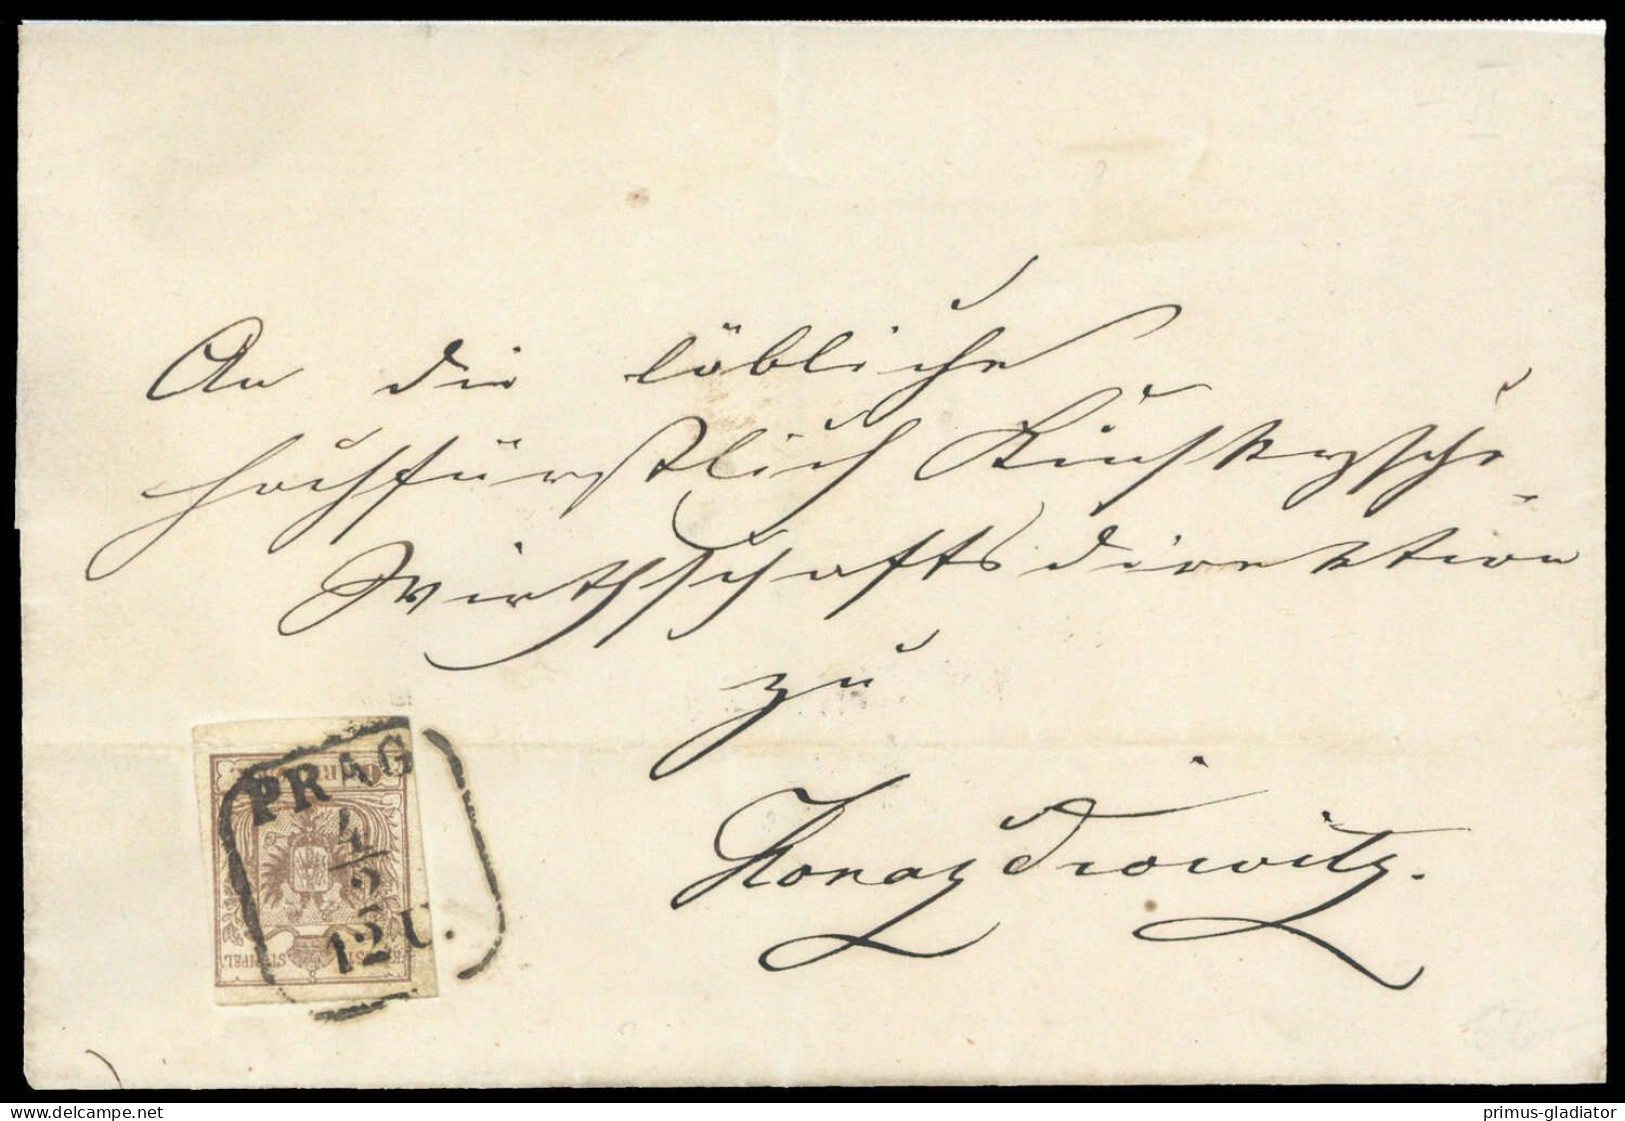 An die löbliche
hochfürstlich Kinskysche
Wirthschaftsdirektion
zu
Horazdiowitz.
PRAG
4
2
12 U.
STEMPEL
delcampe.net
primus-gladiator